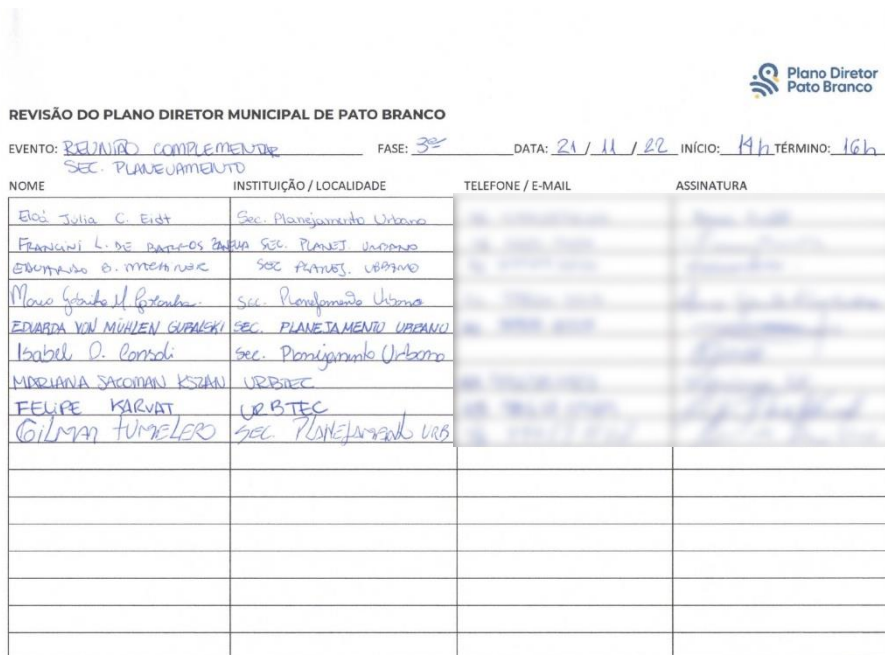 Plano Diretor
Pato Branco
REVISÃO DO PLANO DIRETOR MUNICIPAL DE PATO BRANCO
EVENTO: REUNIÃO COMPLEMENTAR FASE: 3ª DATA: 21 / 11 / 22 INÍCIO: 14h TÉRMINO: 16h
SEC. PLANEJAMENTO
NOME INSTITUIÇÃO / LOCALIDADE TELEFONE / E-MAIL ASSINATURA
Eloá Julia C. Eidt Sec. Planejamento Urbano
FRANCINI L. DE BARROS SEC. PLANEJ. URBANO
EDUARDO B. SEC PLANEJ. URBANO
Sec. Planejamento Urbano
EDUARDA VON MÜHLEN GUBALSKI SEC. PLANEJAMENTO URBANO
Isabel D. Consoli Sec. Planejamento Urbano
MARIANA SACOMAN KSZAN URBTEC
FELIPE KARVAT URBTEC
GILMAR TUMELERO SEC. PLANEJAMENTO URB